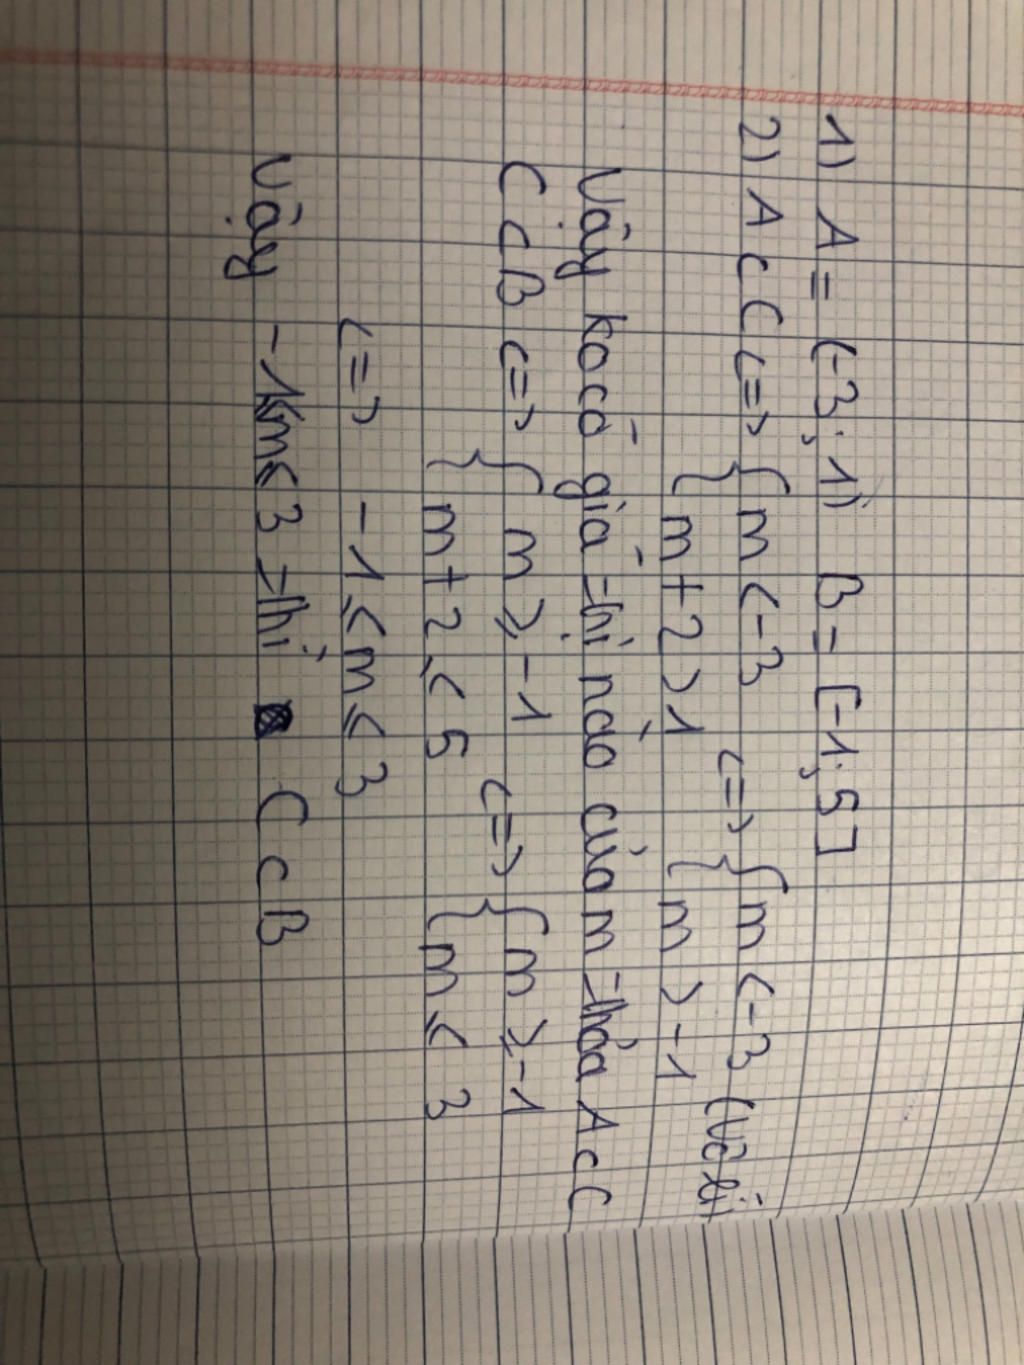 1) A = (-3; 1) B = [-1; 5]
2) A ⊂ C <=> { m < -3 <=> { m < -3 (Vô lí)
m + 2 > 1 m > -1
Vậy ko có giá thị nào của m thỏa A ⊂ C
C ⊂ B <=> { m ⩾ -1 <=> { m ⩾ -1
m + 2 ⩽ 5 m ⩽ 3
<=> -1 ⩽ m ⩽ 3
Vậy -1 ⩽ m ⩽ 3 thì C ⊂ B